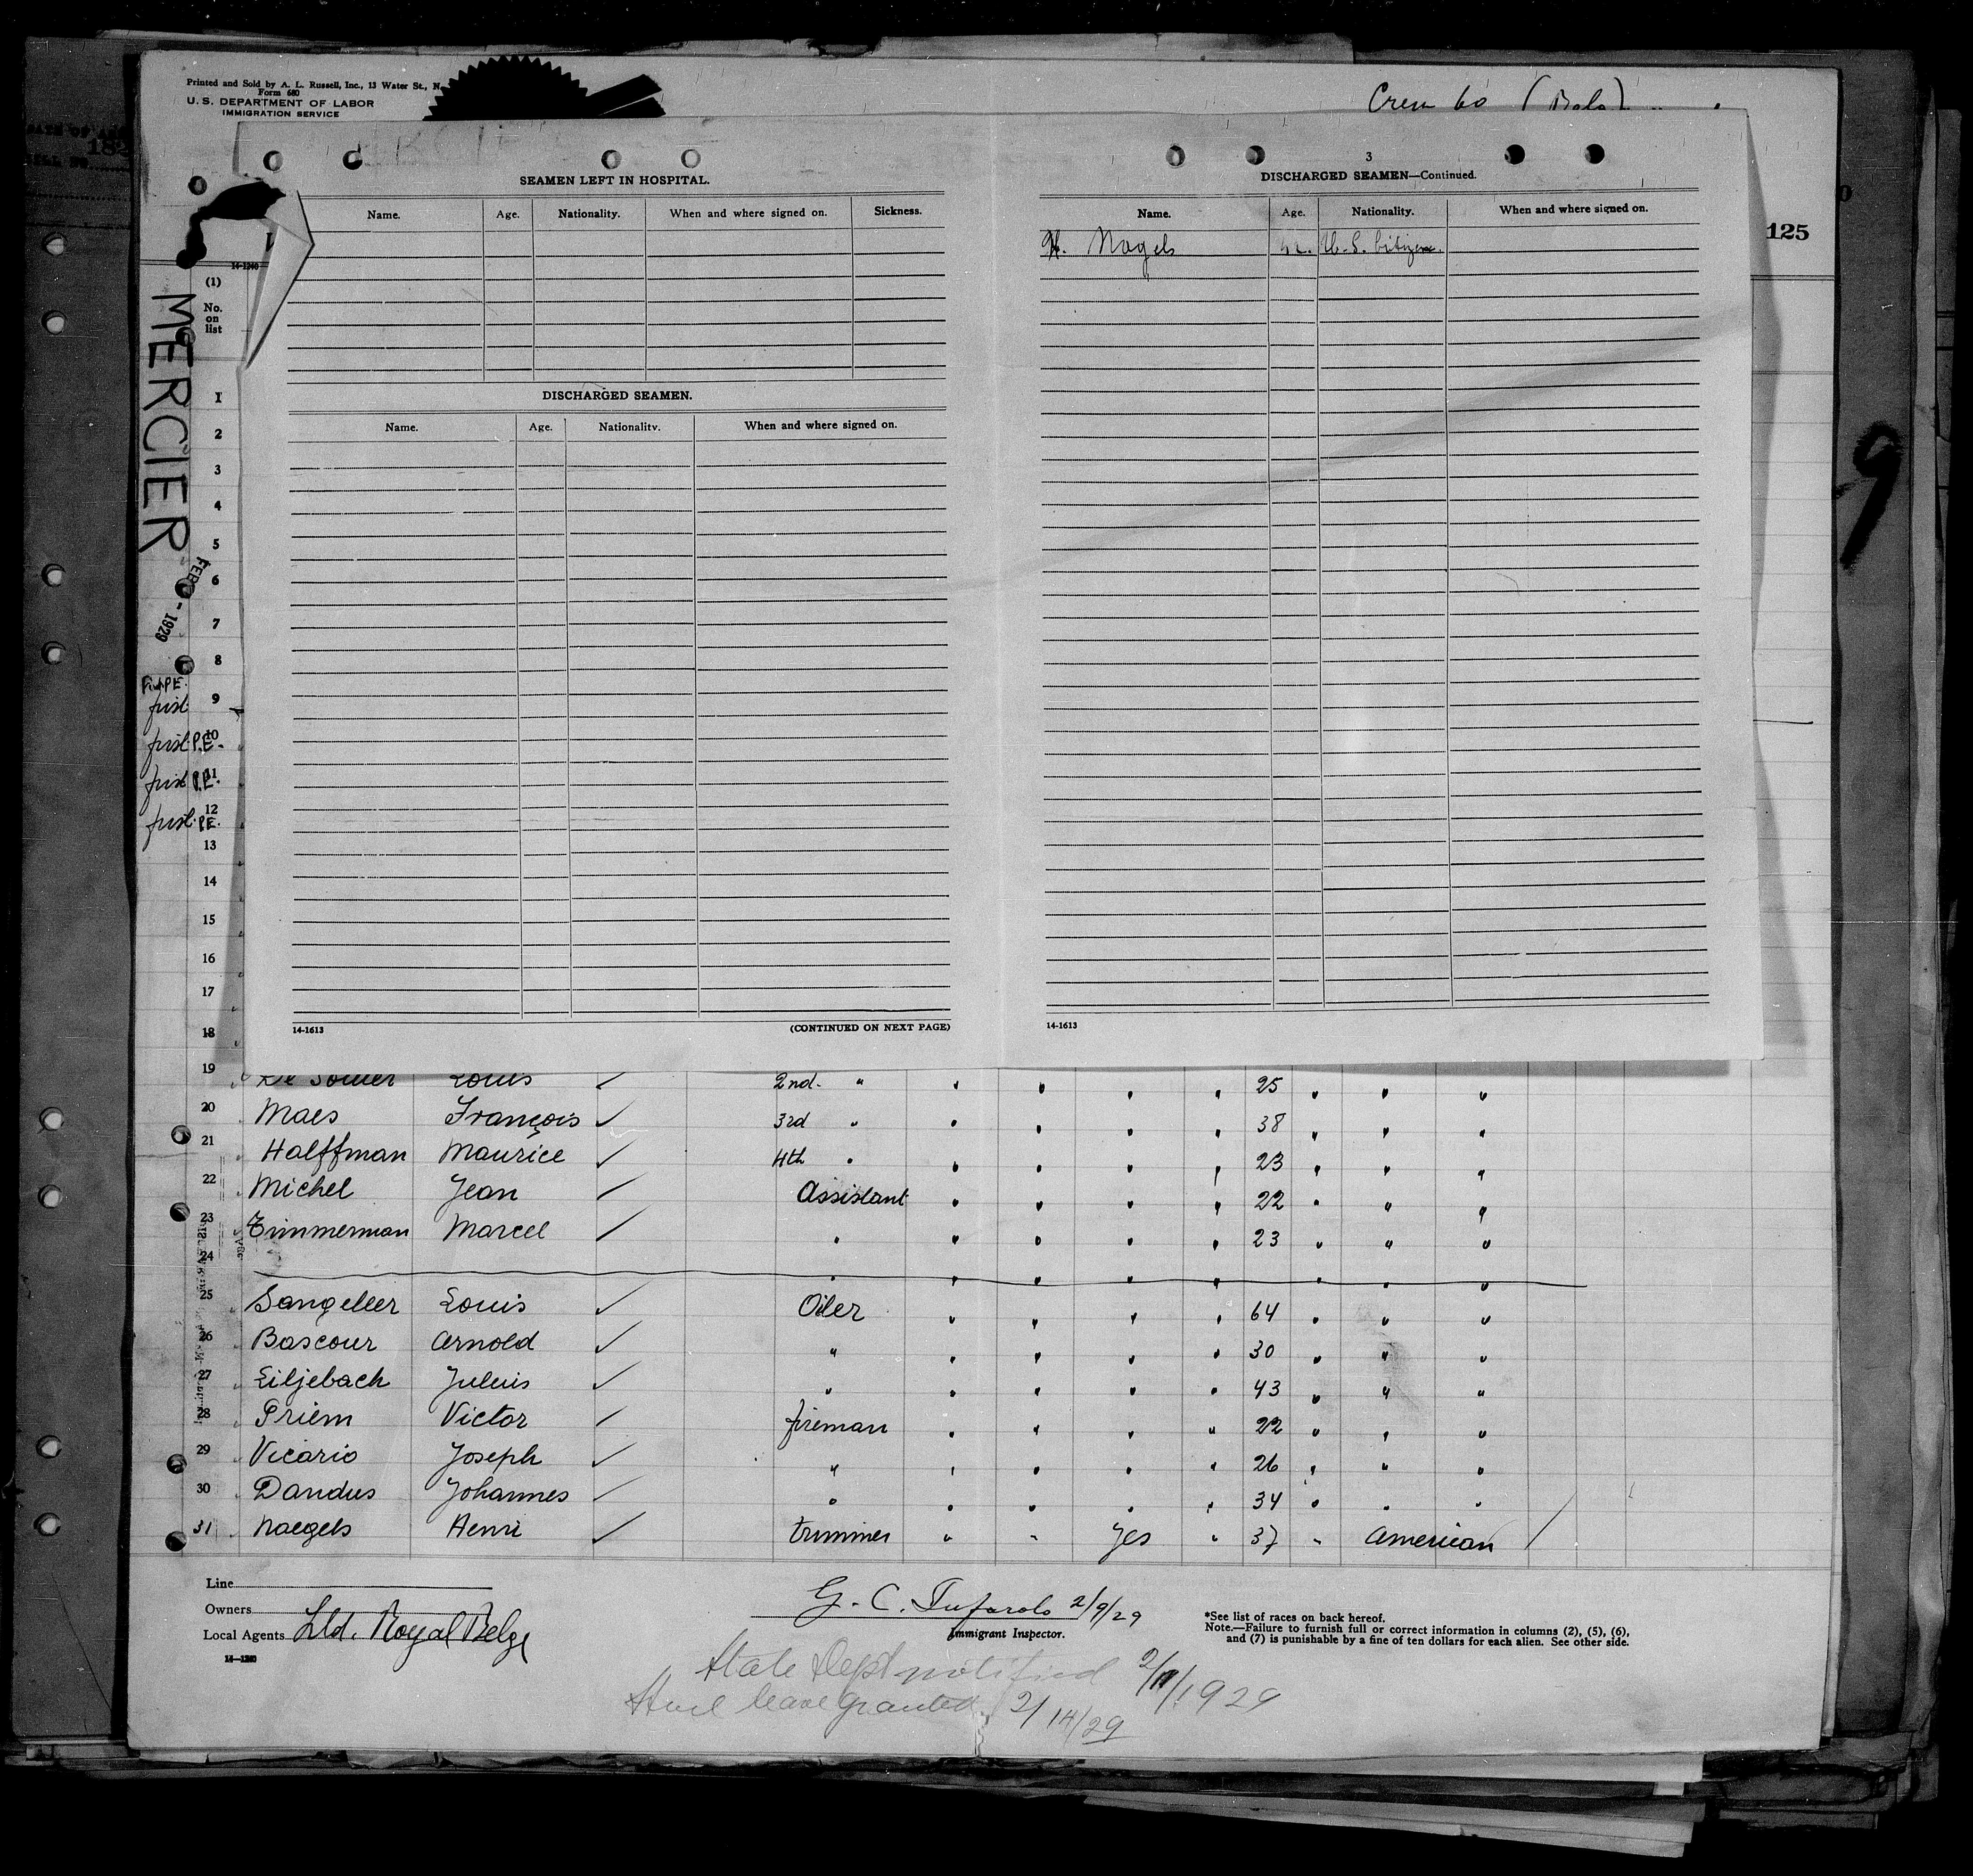 Printed and Sold by A. L. Russell, Inc., 13 Water St., N.
Form 680
U. S. DEPARTMENT OF LABOR
IMMIGRATION SERVICE
Crew 60
125
9
MERCIER
FEB - 1929
14-1240
(1)
No. on list
SEAMEN LEFT IN HOSPITAL.
Name. Age. Nationality. When and where signed on. Sickness.
DISCHARGED SEAMEN.
Name. Age. Nationality. When and where signed on.
14-1613 (CONTINUED ON NEXT PAGE)
3
DISCHARGED SEAMEN—Continued.
Name. Age. Nationality. When and where signed on.
H. Nagels U.S. Citizen.
14-1613
1
2
3
4
5
6
7
8
first P.E.
first 9
first P.E. 10
first P.E. 11
first P.E. 12
13
14
15
16
17
18
19 De Somer Louis ✓ 2nd. " " " " " 25 " " "
20 Maes François ✓ 3rd " " " " " 38 " " "
21 Halffman Maurice ✓ 4th " " " " " 23 " " "
22 Michel Jean ✓ Assistant " " " " 22 " " "
23 Timmerman Marcel ✓ " " " " " 23 " " "
24 " " " " " " " "
25 Sangeleer Louis ✓ Oiler " " " " 64 " " "
26 Bascour Arnold ✓ " " " " " 30 " " "
27 Liljebach Julius ✓ " " " " " 43 " " "
28 Priem Victor ✓ fireman " " " " 22 " " "
29 Vicario Joseph ✓ " " " " " 26 " " "
30 Dandus Johannes ✓ " " " " " 34 " " "
31 Naegels Henri ✓ trimmer " " Yes " 37 " American
Line
Owners
Local Agents Lld. Royal Belge
14-1240
G. C. Tufarolo 2/9/29
Immigrant Inspector.
*See list of races on back hereof.
Note.—Failure to furnish full or correct information in columns (2), (5), (6),
and (7) is punishable by a fine of ten dollars for each alien. See other side.
State Dept notified 2/11/1929
leave granted 2/14/29